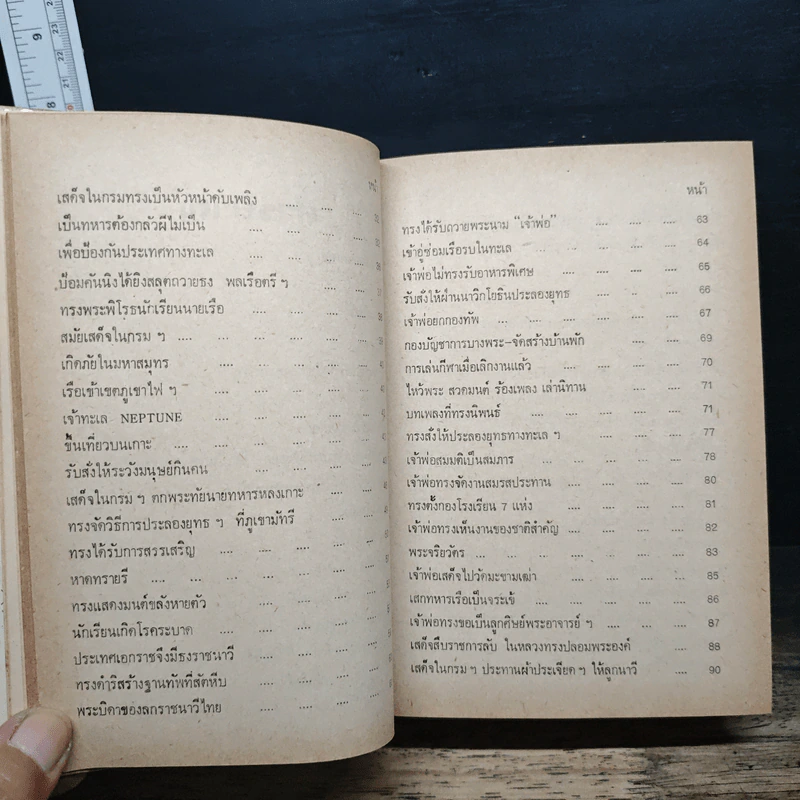 9
8
24
23
22
21
หน้า
เสด็จในกรมทรงเป็นหัวหน้าดับเพลิง .... .... ....
เป็นทหารต้องกลัวผีไม่เป็น .... .... ....
เพื่อป้องกันประเทศทางทะเล .... .... ....
ป้อมคันนิงได้ยิงสลุตถวายธง พลเรือตรี ฯ ....
ทรงพระพิโรธนักเรียนนายเรือ .... .... ....
สมัยเสด็จในกรม ฯ .... .... .... ....
เกิดภัยในมหาสมุทร .... .... .... ....
เรือเข้าเขตภูเขาไฟ ฯ .... .... .... ....
เจ้าทะเล NEPTUNE .... .... .... ....
ขึ้นเที่ยวบนเกาะ .... .... .... ....
รับสั่งให้ระวังมนุษย์กินคน .... .... ....
เสด็จในกรม ฯ ตกพระทัยนายทหารหลงเกาะ .... ....
ทรงจัดวิธีการประลองยุทธ ฯ ที่ภูเขามัทรี .... ....
ทรงได้รับการสรรเสริญ .... .... .... ....
หาดทรายรี .... .... .... .... ....
ทรงแสดงมนต์ขลังหายตัว .... .... ....
นักเรียนเกิดโรคระบาด .... .... ....
ประเทศเอกราชจึงมีธงราชนาวี .... .... ....
ทรงดำริสร้างฐานทัพที่สัตหีบ .... .... ....
พระบิดาของลูกราชนาวีไทย .... .... ....
หน้า
ทรงได้รับถวายพระนาม “เจ้าพ่อ” .... .... .... 63
เข้าอู่ซ่อมเรือรบในทะเล .... .... .... .... 64
เจ้าพ่อไม่ทรงรับอาหารพิเศษ .... .... .... 65
รับสั่งให้ผ่านนาวิกโยธินประลองยุทธ .... .... 66
เจ้าพ่อยกกองทัพ .... .... .... .... .... 67
กองบัญชาการบางพระ–จัดสร้างบ้านพัก .... .... 69
การเล่นกีฬาเมื่อเลิกงานแล้ว .... .... .... 70
ไหว้พระ สวดมนต์ ร้องเพลง เล่านิทาน .... .... 71
บทเพลงที่ทรงนิพนธ์ .... .... .... .... 71
ทรงสั่งให้ประลองยุทธทางทะเล ฯ .... .... .... 77
เจ้าพ่อสมมติเป็นสมภาร .... .... .... .... 78
เจ้าพ่อทรงจัดงานสมรสประทาน .... .... .... 80
ทรงตั้งกองโรงเรียน 7 แห่ง .... .... .... 81
เจ้าพ่อทรงเห็นงานของชาติสำคัญ .... .... .... 82
พระจริยวัตร ... .... .... .... .... .... 83
เจ้าพ่อเสด็จไปวัดมะขามเฒ่า .... .... .... 85
เสกทหารเรือเป็นจระเข้ .... .... .... .... 86
เจ้าพ่อทรงขอเป็นลูกศิษย์พระอาจารย์ ฯ .... .... .... 87
เสด็จสืบราชการลับ ในหลวงทรงปลอมพระองค์ .... .... 88
เสด็จในกรม ฯ ประทานผ้าประเจียด ฯ ให้ลูกนาวี .... 90